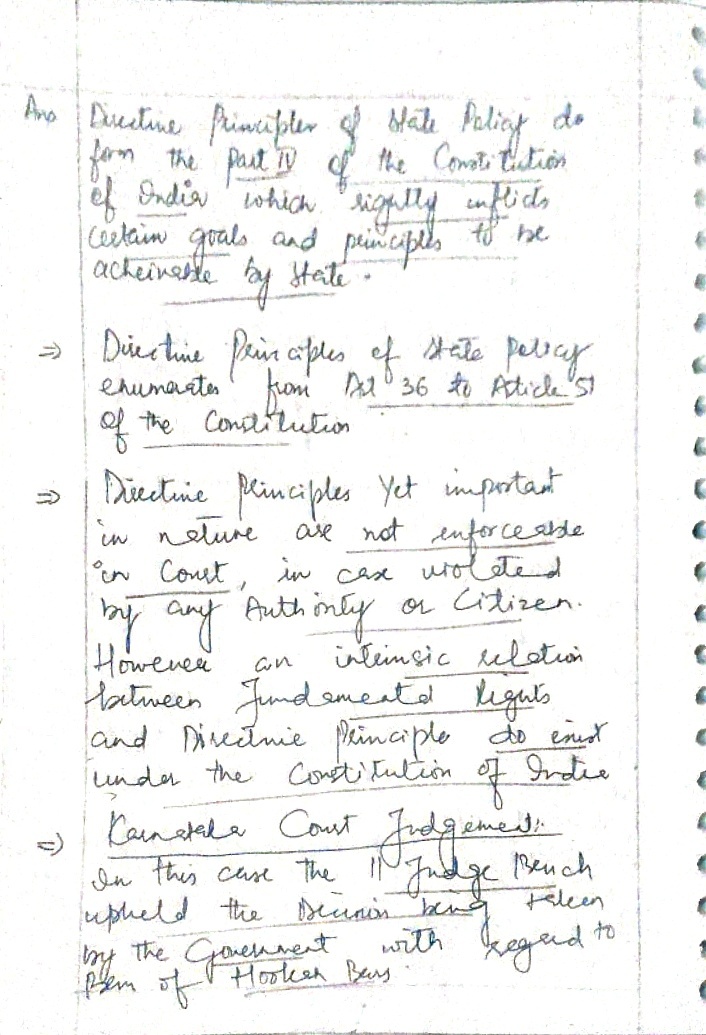 Ans Directive Principles of State Policy do
form the Part IV of the Constitution
of India which rightly inflicts
certain goals and principles to be
acheivable by State.
⇒ Directive Principles of State policy
enumerates from Art 36 to Article 51
of the Constitution
⇒ Directive Principles Yet important
in nature are not enforceable
in Court, in case violated
by any Authority or Citizen.
However an intrinsic relation
between Fundamental Rights
and Directive Principle do exist
under the Constitution of India
⇒ Karnataka Court Judgement:
In this case the 11 Judge Bench
upheld the Decision being taken
by the Government with regard to
Ban of Hookah Bars.